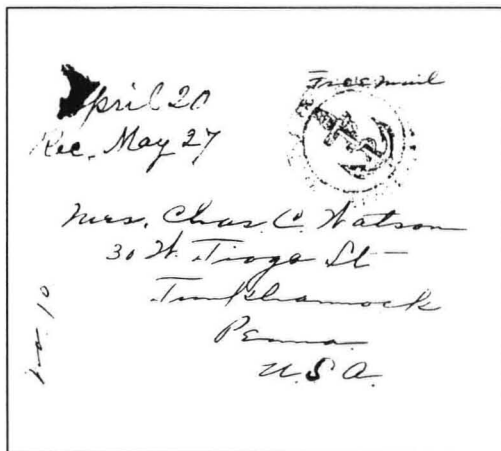 April 20
Rec. May 27
Free mail
Mrs. Chas. C. Watson
30 W. Tioga St-
Tunkhannock
Penna.
U.S.A.
no. 10